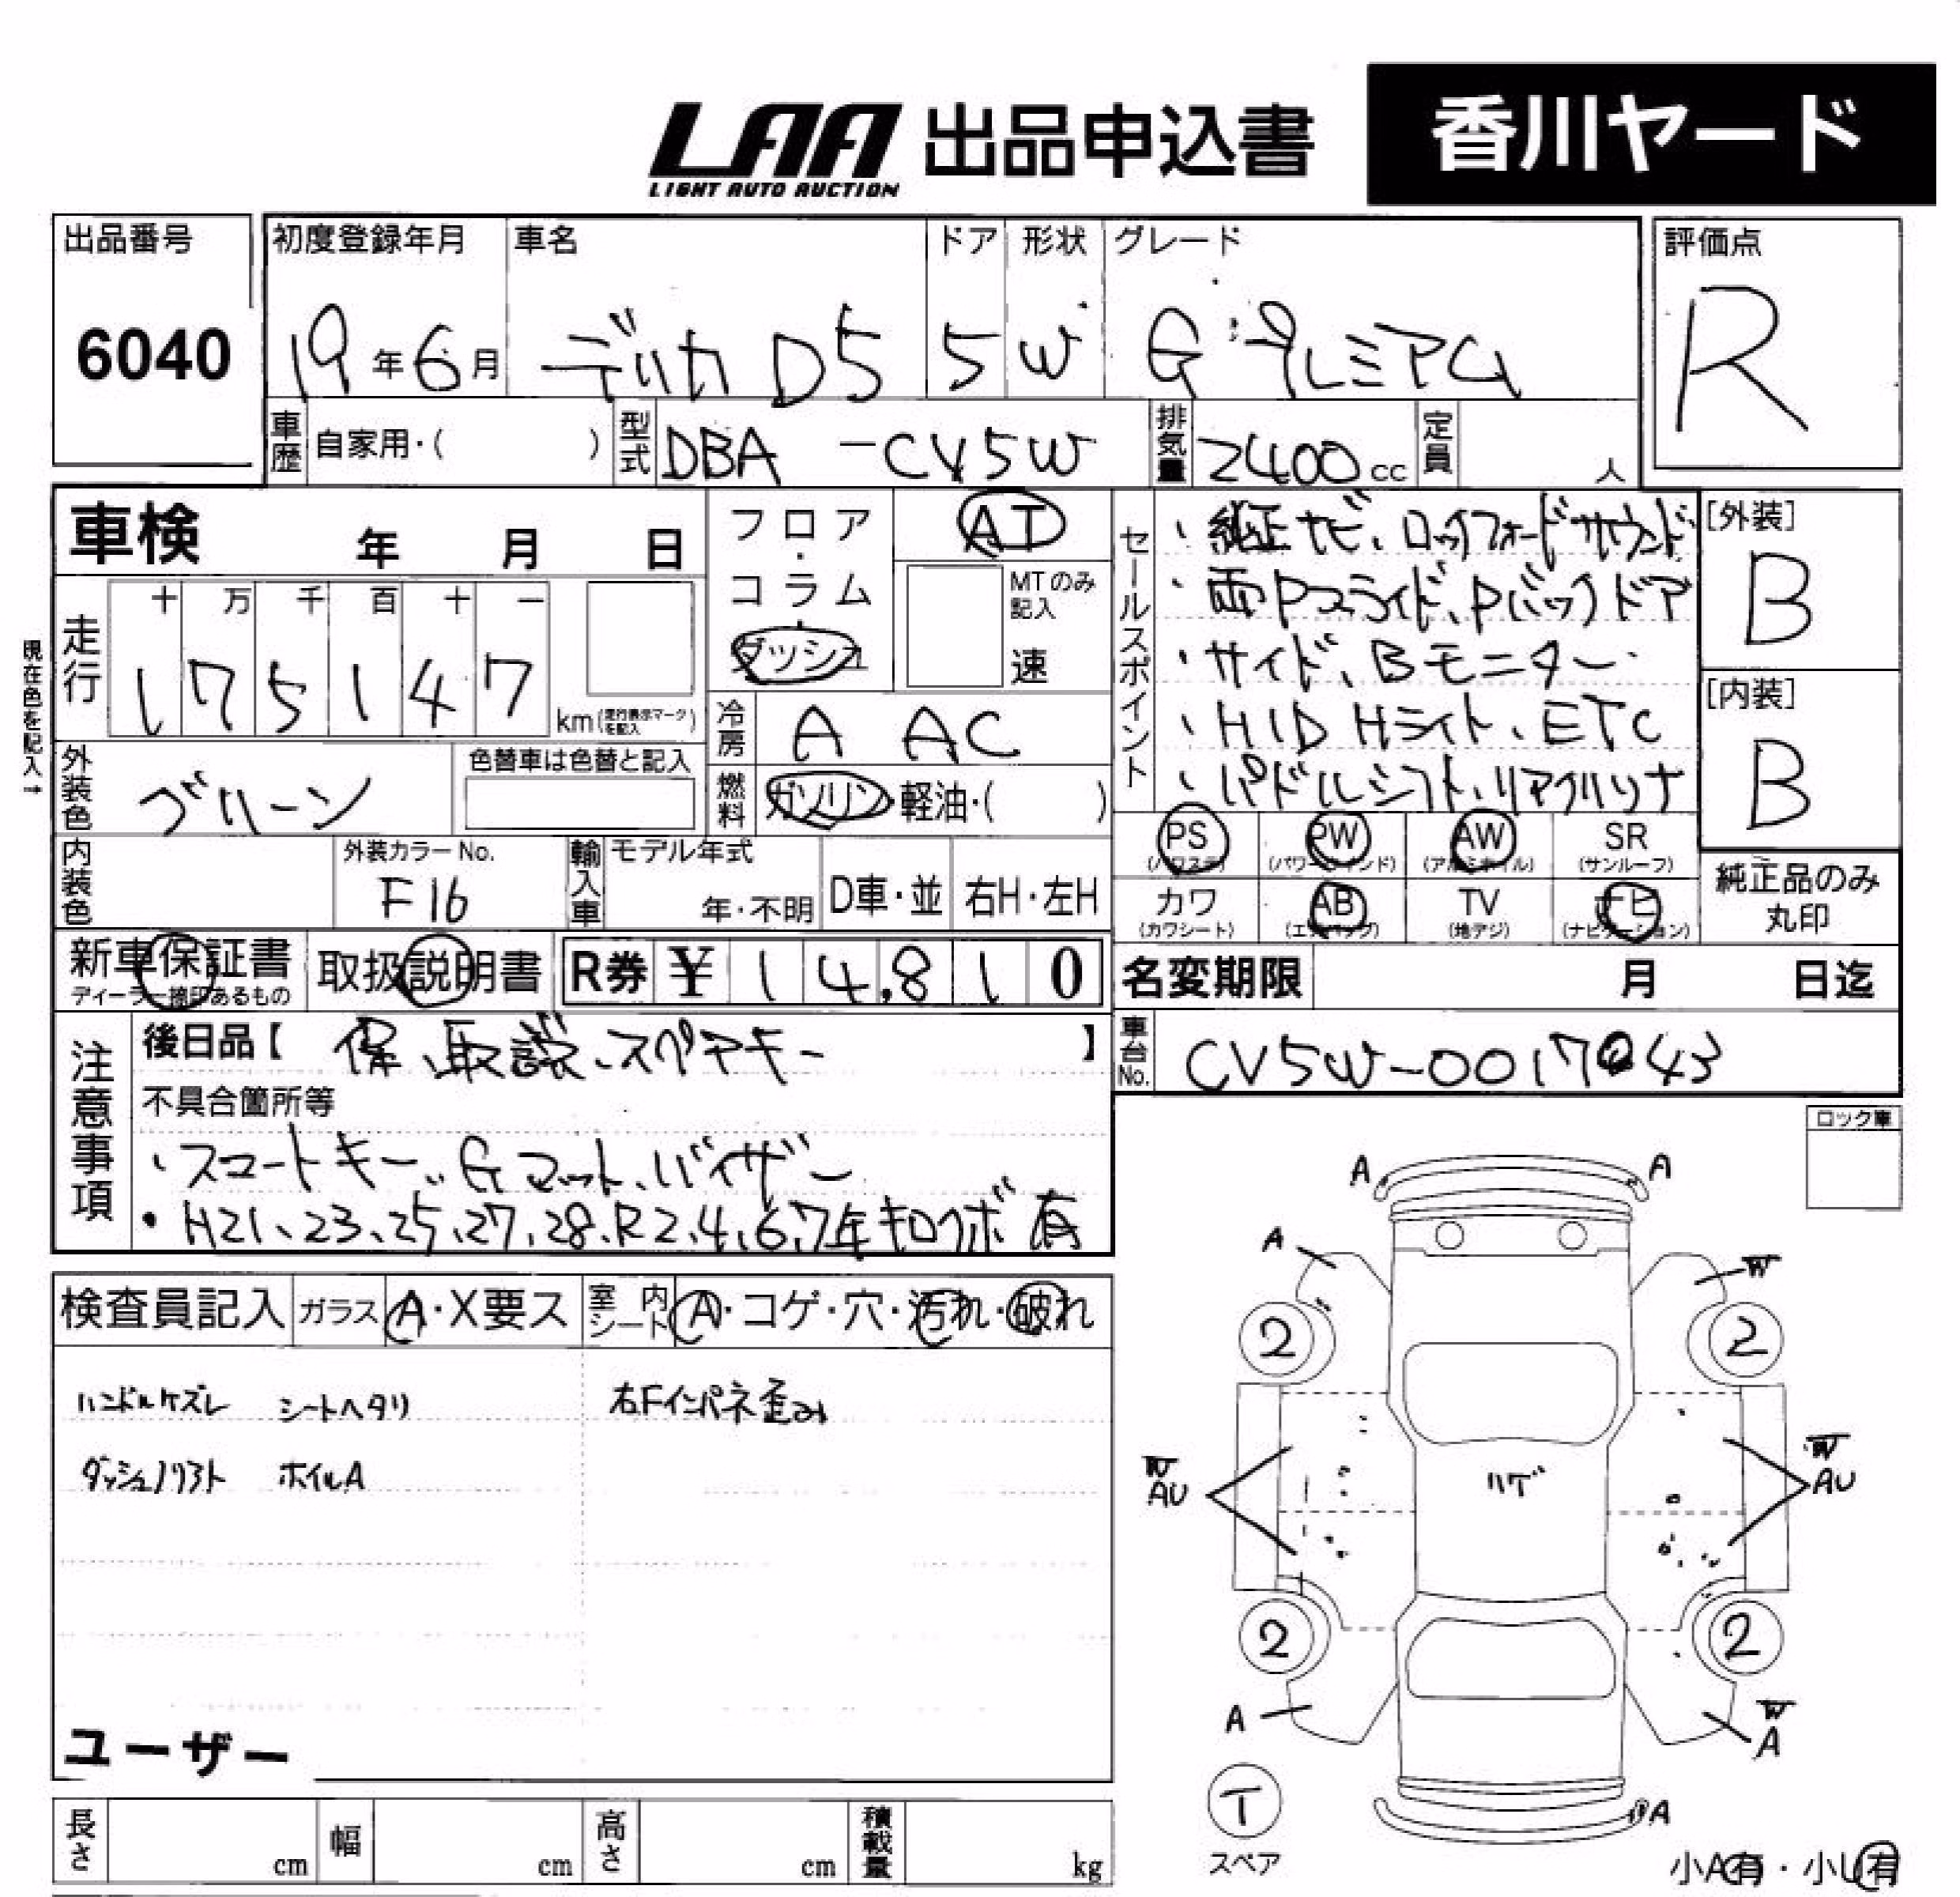 LAA 出品申込書 香川ヤード
LIGHT AUTO AUCTION
出品番号 初度登録年月 車名 ドア 形状 グレード 評価点
6040 19年6月 デリカD5 5 W Gプレミアム R
車歴 自家用・( ) 型式 DBA-CV5W 排気量 2400cc 定員 人
車検 年 月 日
フロア・コラム ダッシュ
AT
MTのみ記入
速
走行 十 万 千 百 十 一
175147 km(走行表示マークを記入)
現在色を記入→
冷房 A AC
燃料 ガソリン・軽油・( )
外装色 グリーン 色替車は色替と記入
内装色 外装カラーNo. F16 輸入車 モデル年式 年・不明 D車・並 右H・左H
セールスポイント
・純正ナビ、ロックフォードサウンド
・両Pスライド、Pバックドア
・サイド、Bモニター
・HID Hライト、ETC
・パドルシフト、リアクルソナ
[外装] B
[内装] B
PS (パワステ) PW (パワーウインド) AW (アルミホイル) SR (サンルーフ)
カワ (カワシート) AB (エアバッグ) TV (地デジ) ナビ (ナビゲーション)
純正品のみ丸印
新車保証書 ディーラー捺印あるもの 取扱説明書 R券 ¥14,810
名変期限 月 日迄
車台No. CV5W-0017043
注意事項
後日品【保、取説、スペアキー】
不具合箇所等
・スマートキー、Gマット、バイザー
・H21、23、25、27、28、R2、4、6、7年キロクボ有
ロック車
検査員記入 ガラス A・X要ス 室内シート A・コゲ・穴・汚れ・破れ
ハンドルケズレ シートヘタリ 右Fインパネ歪み
ダッシュノリヨト ホイルA
ユーザー
A A
A W
2 2
W AU ハゲ W AU
2 2
A W A
T A
スペア
小A有・小U有
長さ cm 幅 cm 高さ cm 積載量 kg